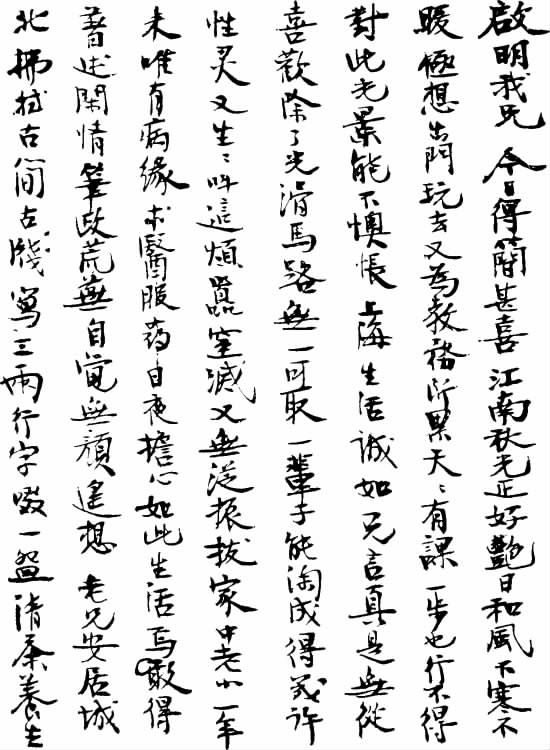 啟明我兄 今日得簡甚喜 江南秋光正好 艷日和風不寒不
暖 極想出門玩去又為教務所累天天有課 一步也行不得
對此光景能不懊悵 上海生活誠如兄言真是無從
喜歡除了光滑馬路無一可取 一輩子能淘成得幾許
性灵又生生叫這煩囂窒滅又無從振拔家中老小一年
來唯有病緣求醫服药日夜擔心如此生活焉敢得
著述閑情筆政荒蕪自覺無顏遙想 老兄安居城
北拂拭古簡古牋寫三兩行字啜一盌清茶養生